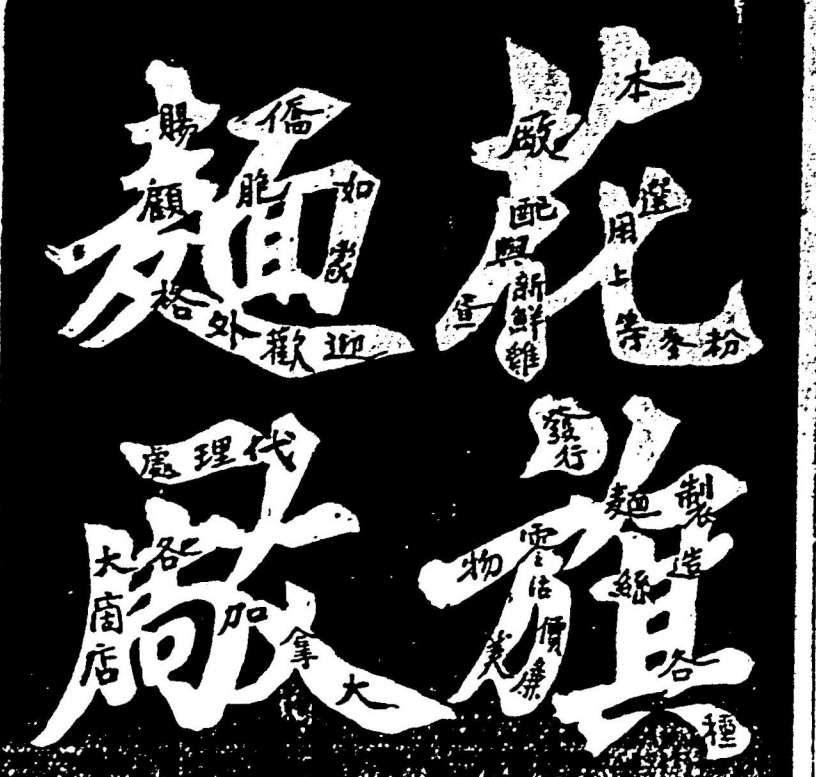 花旗麵厰
本厰
選用上等麥粉
配與新鮮雞蛋
製造各種
麵絲
發行
零沽
價廉
物美
如蒙
僑胞
賜顧
格外歡迎
代理處
加拿大
各大商店